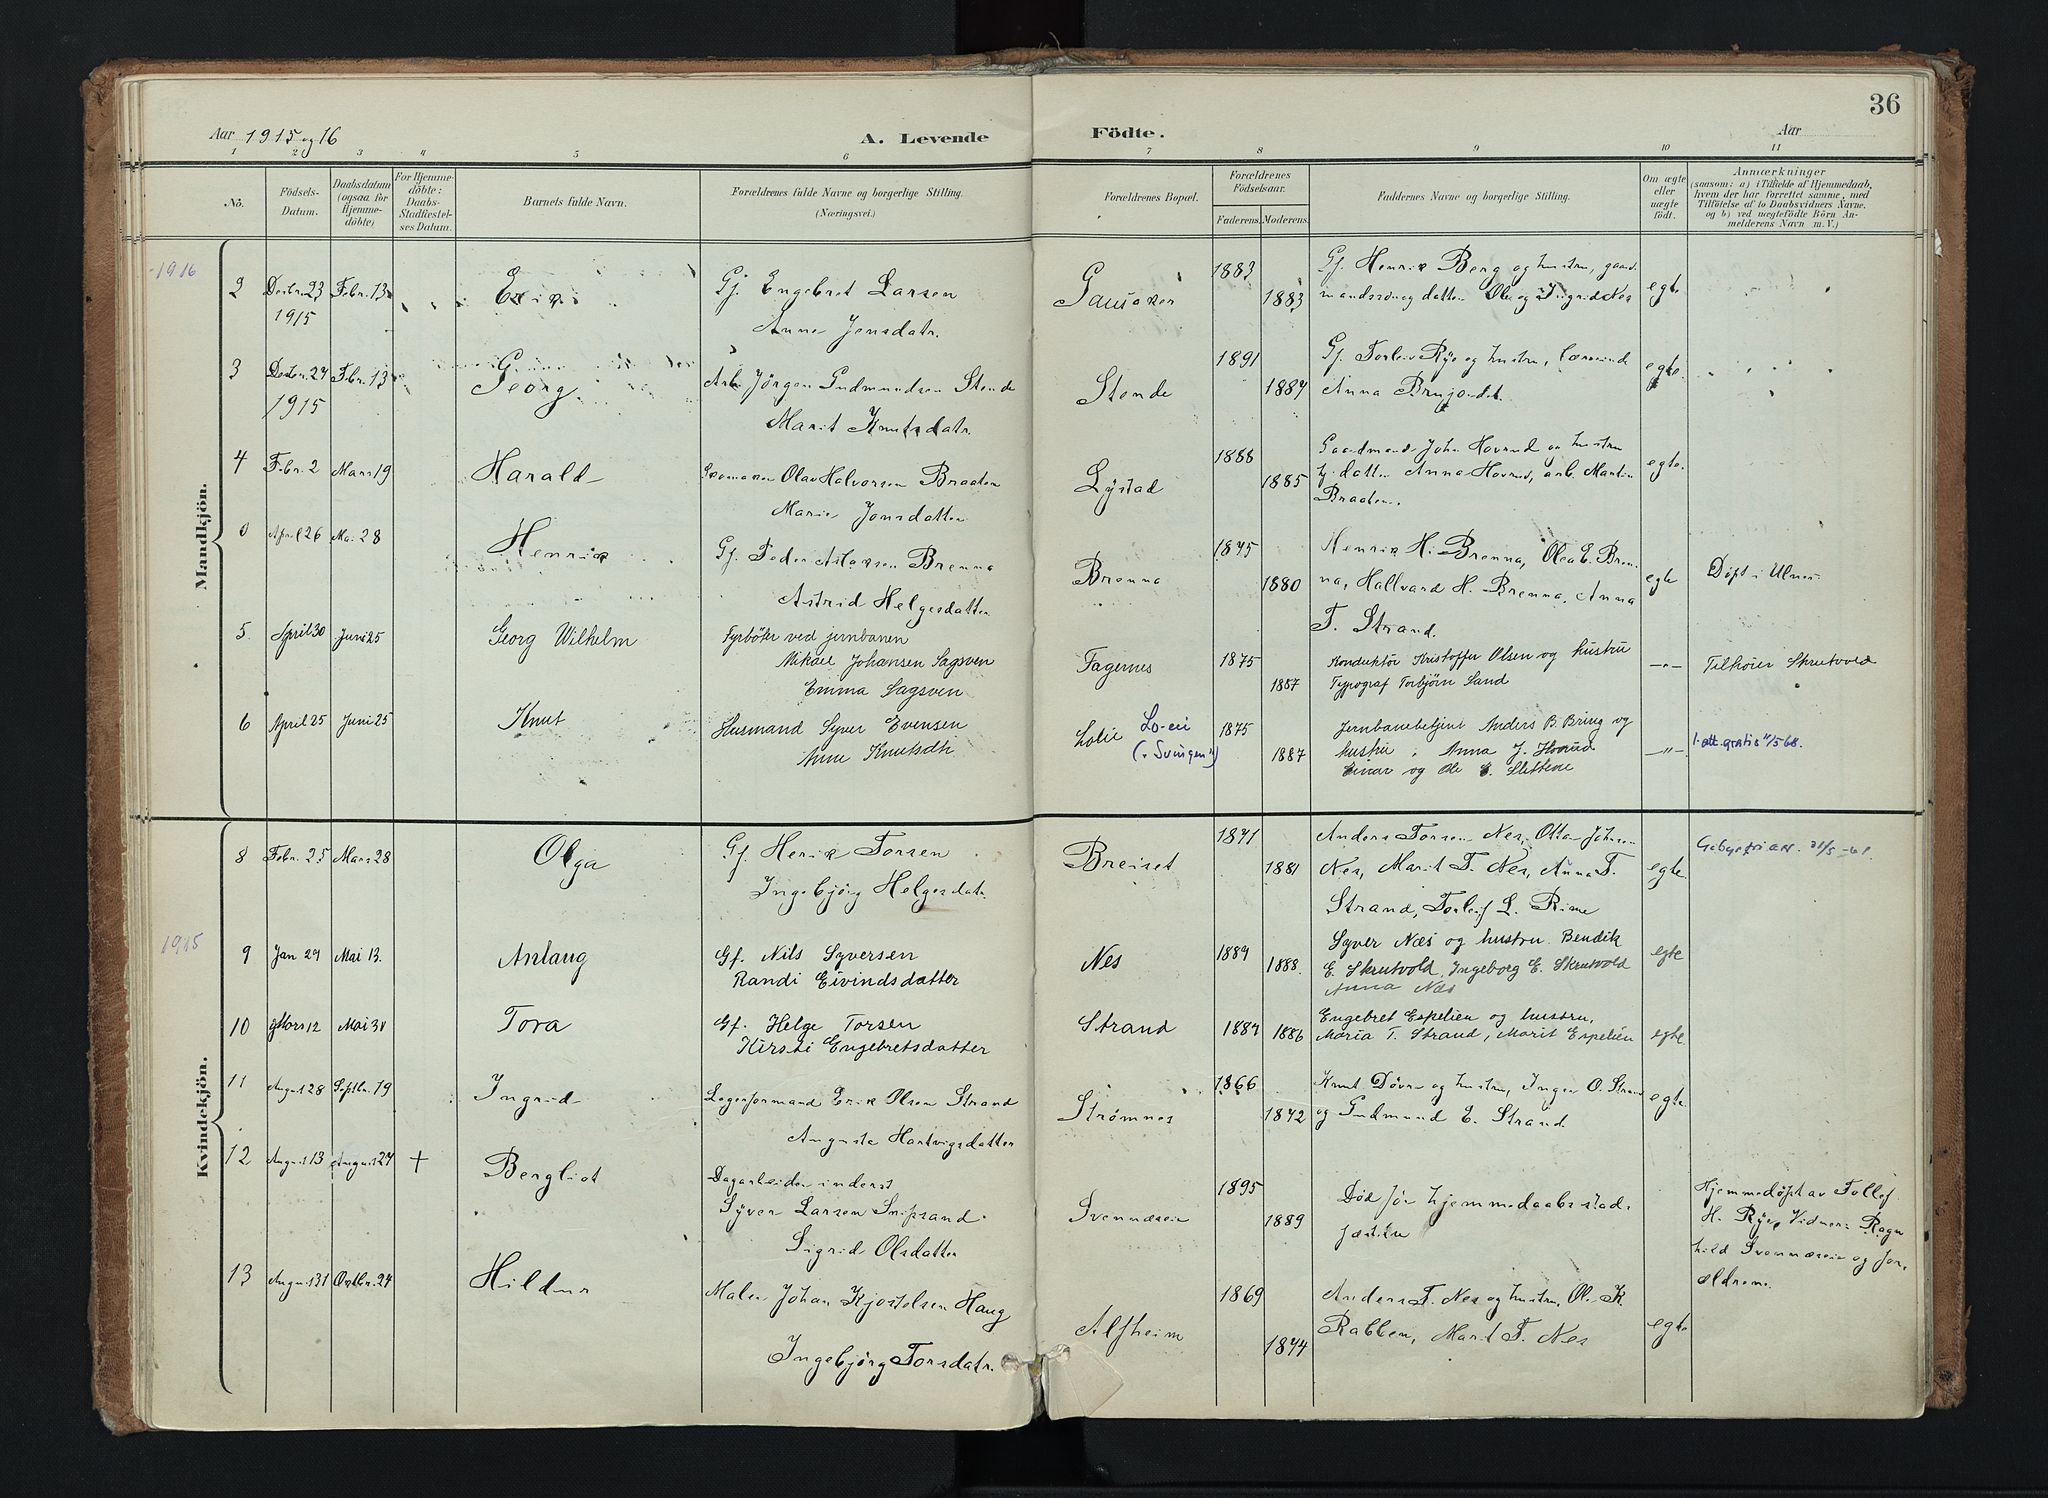 36
Aar 1915 og 16
A. Levende Födte.
Aar
1 2 3 4 5 6 7 8 9 10 11
No.
Födsels-Datum.
Daabsdatum (ogsaa for Hjemme-döbte)
For Hjemme-döbte: Daabs-Stadfæstel-ses Datum.
Barnets fulde Navn.
Forældrenes fulde Navne og borgerlige Stilling. (Næringsvei.)
Forældrenes Bopæl.
Forældrenes Födselsaar.
Faderens. Moderens.
Faddernes Navne og borgerlige Stilling.
Om ægte eller uægte födt.
Anmærkninger
(saasom: a) i Tilfælde af Hjemmedaab, hvem der har forrettet samme, med Tilföielse af to Daabsvidners Navne, og b) ved uægtefödte Börn An-melderens Navn m. V.)
Mandkjön.
1916
2 Desbr. 23 1915 Febr. 13 Erik Gj. Engebret Larsen
Anne Jensdatr.
1883 1883 Gj. Henrik Berg og hustru, gaard-
mandssön og datter Ole og Ingrid Nes egte
3 Desbr. 27 1915 Febr. 13 Georg Arb. Jörgen Gudmundsen Stende
Marit Knutsdatr.
Stende 1891 1887 Gj. Torleiv Rye og hustru,
Anna egte.
4 Febr. 2 Mars 19 Harald Skomaker Olav Halvorsen Braaten
Marie Jonsdatter
Lystad 1888 1885 Gaardmand John Hovrud og hustru
datter Anna Hovrud, arb. Martin
Braaten. egte.
0 April 26 Mai 28 Henrik Gj. Peder Aslaksen Brenna
Astrid Helgesdatter
Brenna 1875 1880 Henrik H. Brenna, Olea E. Bren-
na, Hallvard H. Brenna, Anna
T. Strand. egte Döpt i Ulnes
5. April 30 Juni 25 Georg Wilhelm Fyrböter ved jernbanen
Mikael Johansen Sagsven
Emma Sagsven
Fagernes 1875 1857 Konduktör Kristoffer Olsen og hustru
Typograf Torbjörn Sand -"- Tilhörer Skrutvold
6 April 25 Juni 25 Knut Husmand Syver Evensen
Anne Knutsdtr
Lolie Lo-eii („Svingen") 1875 1887 Jernbanebetjent Anders B. Bring og
hustru, Anna J. Hovrud
Einar og Ole E. Slettene -"- 1. att. gratis 11/5 68.
Kvindekjön.
8 Febr. 25 Mars 28 Olga Gj. Henrik Torsen
Ingebjörg Helgesdatr.
Breiset 1871 1881 Anders Torsen Nes, Otta Johnsen
Nes, Marit T. Nes, Anna T.
Strand, Torleif L. Rime egte
1915
9 Jan 27 Mai 13. Anlaug Gf. Nils Syversen
Randi Eivindsdatter
Nes 1887 1888. Syver Næs og hustru. Bendik
E. Skrutvold, Ingeborg E. Skrutvold
Anna Næs egte
10 Mars 12 Mai 30 Tora Gf. Helge Torsen
Kirsti Engebretsdatter
Strand 1887 1886 Engebret Espelien og hustru,
Maria T. Strand, Marit Espelien egte.
11 August 28 Septbr. 19 Ingrid Lagerformand Erik Olsen Strand
Augusta Hartvigsdatter
Strömnes 1866 1872 Knut Döven og hustru, Inger O. Strand
og Gudmund E. Strand egte.
12 August 13 August 27 + Bergliot Dagarbeider inderst
Syver Larsen Snipsand.
Sigrid Olsdatter
Svennæseie 1895 1889 Död för hjemmedaabs stad-
fæstelse
Hjemmedöpt av Tollef
H. Rye, Vidner: Ragn
hild Svennæseie og for-
ældrene.
13 August 31 Oktbr. 24 Hildur Maler Johan Kjöstelsen Haug
Ingebjörg Torsdatr.
Alfheim 1869 1874 Anders T. Nes og hustru, Ole K.
Rabben, Marit T. Nes egte